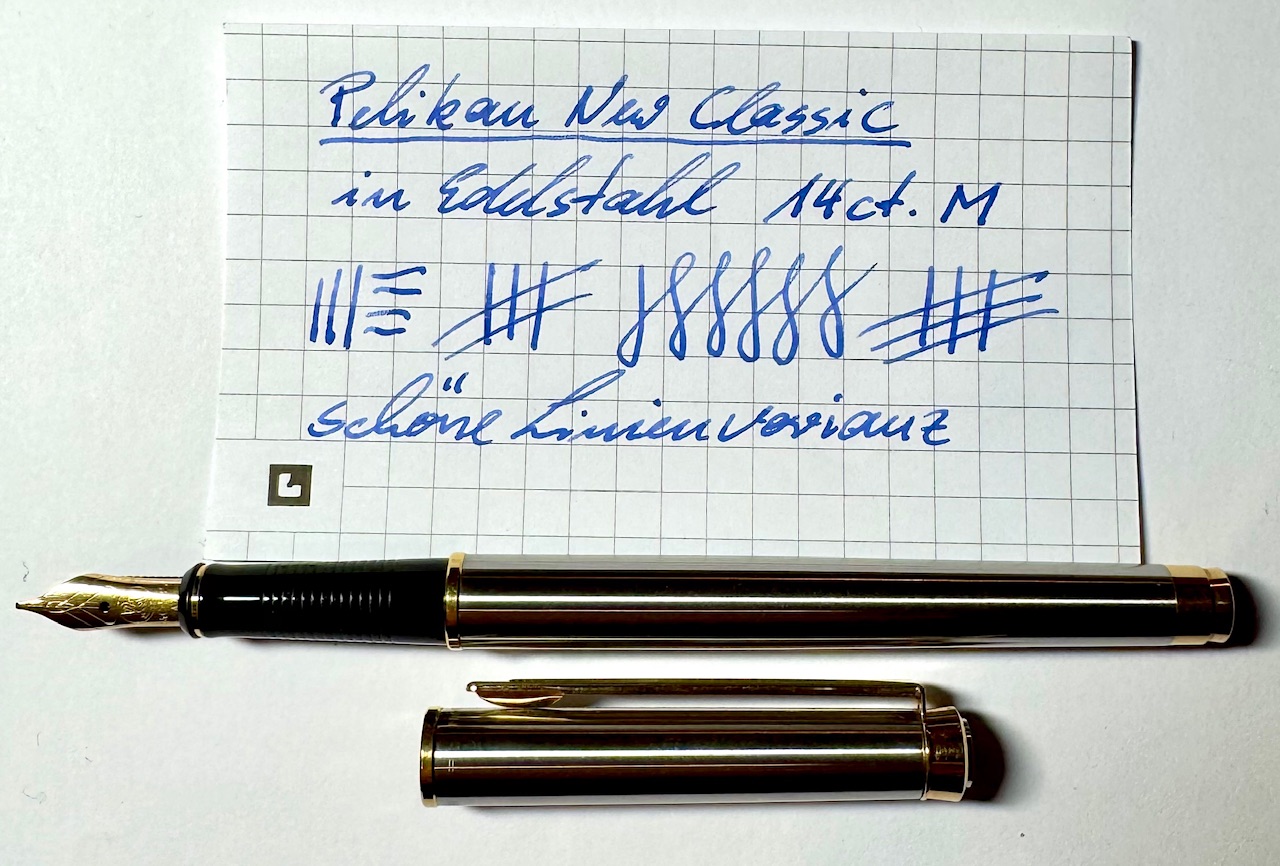 Pelikan New Classic
in Edelstahl 14ct. M
schöne Linienvarianz